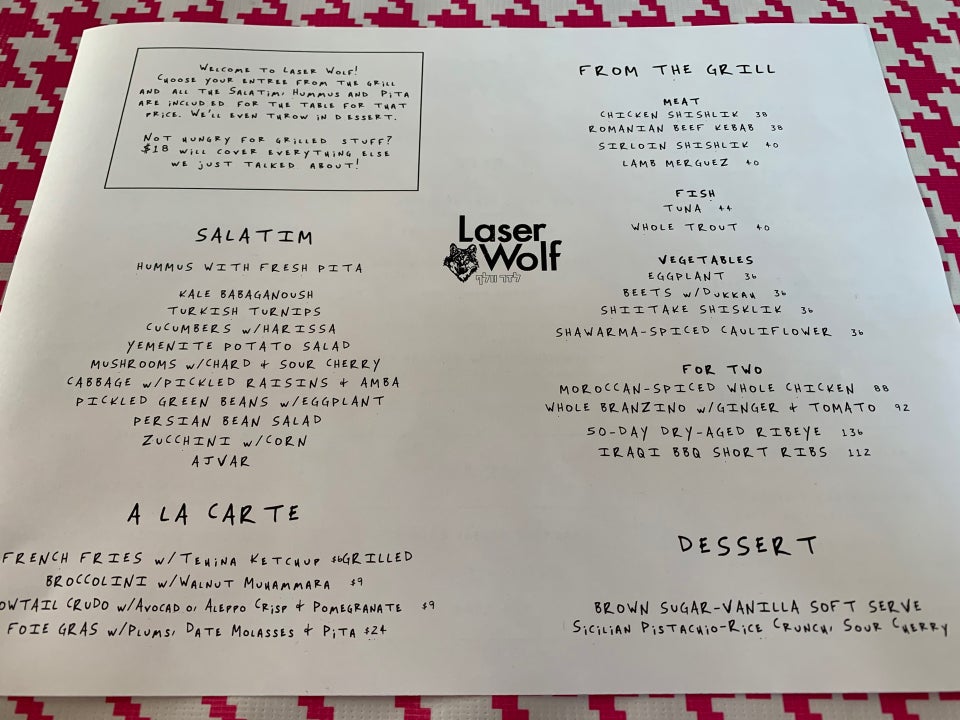 WELCOME TO LASER WOLF!
CHOOSE YOUR ENTREE FROM THE GRILL
AND ALL THE SALATIM, HUMMUS AND PITA
ARE INCLUDED FOR THE TABLE FOR THAT
PRICE. WE'LL EVEN THROW IN DESSERT.
NOT HUNGRY FOR GRILLED STUFF?
$18 WILL COVER EVERYTHING ELSE
WE JUST TALKED ABOUT!
SALATIM
HUMMUS WITH FRESH PITA
KALE BABAGANOUSH
TURKISH TURNIPS
CUCUMBERS W/HARISSA
YEMENITE POTATO SALAD
MUSHROOMS W/CHARD + SOUR CHERRY
CABBAGE W/PICKLED RAISINS + AMBA
PICKLED GREEN BEANS W/EGGPLANT
PERSIAN BEAN SALAD
ZUCCHINI W/CORN
AJVAR
A LA CARTE
FRENCH FRIES W/TEHINA KETCHUP $6GRILLED
BROCCOLINI W/WALNUT MUHAMMARA $9
OWTAIL CRUDO W/AVOCADO, ALEPPO CRISP + POMEGRANATE $9
FOIE GRAS W/PLUMS, DATE MOLASSES + PITA $24
Laser
Wolf
לזר וולף
FROM THE GRILL
MEAT
CHICKEN SHISHLIK 38
ROMANIAN BEEF KEBAB 38
SIRLOIN SHISHLIK 40
LAMB MERGUEZ 40
FISH
TUNA 44
WHOLE TROUT 40
VEGETABLES
EGGPLANT 36
BEETS W/DUKKAH 36
SHIITAKE SHISKLIK 36
SHAWARMA-SPICED CAULIFLOWER 36
FOR TWO
MOROCCAN-SPICED WHOLE CHICKEN 88
WHOLE BRANZINO W/GINGER + TOMATO 92
50-DAY DRY-AGED RIBEYE 136
IRAQI BBQ SHORT RIBS 112
DESSERT
BROWN SUGAR-VANILLA SOFT SERVE
SICILIAN PISTACHIO-RICE CRUNCH, SOUR CHERRY